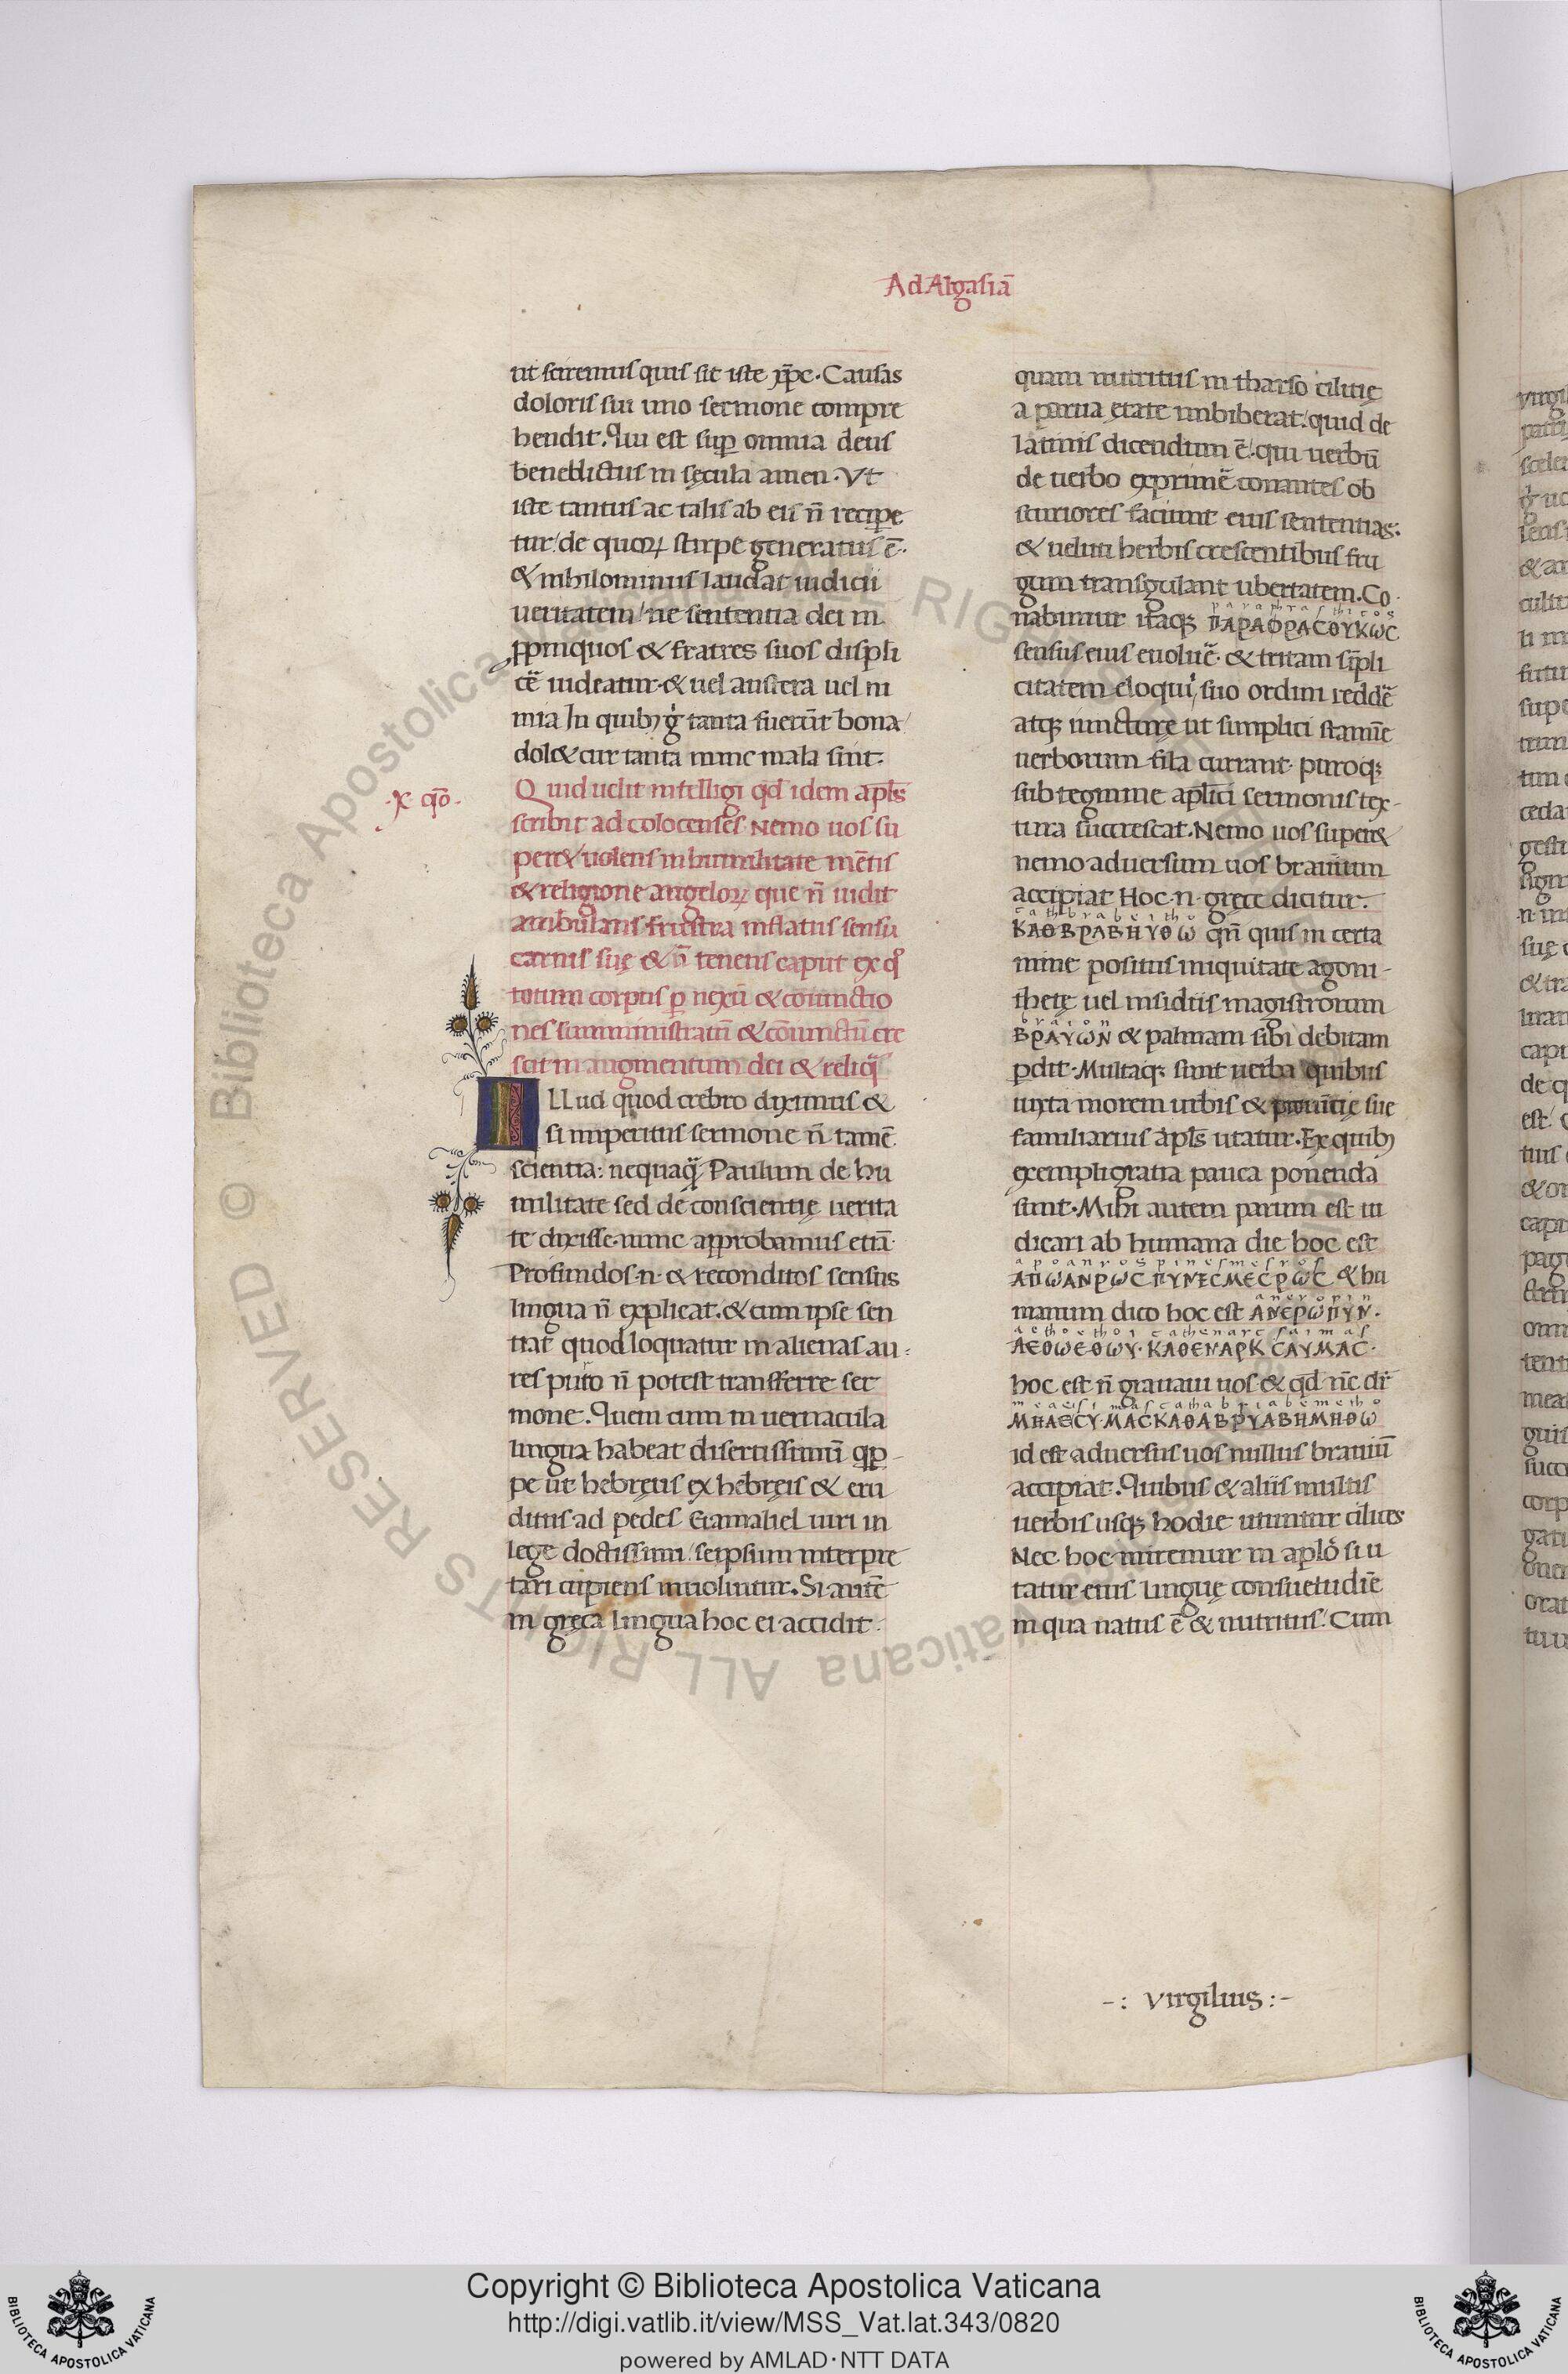 Ad Algasiā
ut sciremus quis sit iste xp̄c. Causas
doloris sui uno sermone compre
hendit. Qui est sup̱ omnia deus
benedictus in sęcula amen. Vt
iste tantus ac talis ab eis n̄ recipe
tur/ de quoꝝ stirpe generatus ē.
& nihilominus laudat iudicii
ueritatem/ ne sententia dei in
ꝓpinquos & fratres suos displi
cē uideatur. & uel austera uel ni
mia In quibꝫ g̊ tanta fuerūt bona/
dol& cur tanta nunc mala sint.
.x. qō.
Quid uelit intelligi qd̄ idem apl̄s
scribit ad colocenses. Nemo uos su
per& uolens in humilitate mētis
& religione angeloꝝ que n̄ uidit
ambulans frustra inflatus sensu
carnis suę & n̄ tenens caput ex q̊
totum corpus ꝑ nexū & coniunctio
nes sumministratū & cōiunctū cre
scit in augmentum dei & reliq̄
ILLud quod crebro diximus &
si imperitus sermone n̄ tamē
scientia: nequaq̄ Paulum de hu
militate sed de conscientię uerita
te dixisse nunc approbamus etiā.
Profundos .n. & reconditos sensus
lingua n̄ explicat. & cum ipse sen
tiat quod loquatur in alienas au-
res puro n̄ potest transferre ser
mone. Quem cum in uernacula
lingua habeat disertissimū qp̱-
pe ut hebręus ex hebręis & eru
ditus ad pedes Gamaliel uiri in
lege doctissimi/ seipsum interpre
tari cupiens inuoluitur. Si autē
in gręca lingua hoc ei accidit.
quam nutritus in tharso cilicię
a parua ętate imbiberat/ quid de
latinis dicendum ē/ qui uerbū
de uerbo exprimē conantes ob
scuriores faciunt eius sententias:
& ueluti herbis crescentibus fru
gum transgulant ubertatem. Co
paraphrasthicos
nabimur itaqꝫ ΠΑΡΑΦΡΑCΘΥΚωC
sensus eius euoluē. & tritam sīpli
citatem eloqui suo ordini reddē
atqꝫ iuncturę ut simplici stamīe
uerborum fila currant. puroqꝫ
subtegmine apl̄ici sermonis tex-
tura succrescat. Nemo uos super&
nemo aduersum uos brauium
accipiat Hoc .n. gręce dicitur.
cathbrabeitho
ΚΑΘΒΡΑΒΗΥΘω qn̄ quis in certa
mine positus iniquitate agoni-
thetę uel insidiis magistrorum
braion
ΒΡΑΥωΝ & palmam sibi debitam
ꝑdit. Multaqꝫ sunt uerba quibus
iuxta morem urbis & prouincię suę
familiarius apl̄s utatur. Ex quibꝫ
exempli gratia pauca ponenda
sunt. Mihi autem parum est iu
dicari ab humana die hoc est
apoanrospinesmesros
ΑΠωΑΝΡωCΠΥΝΕCΜΕCΡωC & hu
aneropin
manum dico hoc est ΑΝΕΡωΠΥΝ.
aethoethoi cathenarc saimas
ΑΕΘωΕΘωΥ. ΚΑΘΕΝΑΡΚ CΑΥΜΑC.
hoc est n̄ grauaui uos & qd̄ nc̄ dr̄
meaeisi mascathabriabemetho
ΜΗΑΕCΥ ΜΑCΚΑΘΑΒΡΥΑΒΗΜΗΘω
id est aduersus uos nullus brauiū
accipiat. Quibus & aliis multis
uerbis usqꝫ hodie utuntur cilices
Nec hoc miremur in aplo si u
tatur eius linguę consuetudīe
in qua natus ē & nutritus. Cum
-: Virgilius :-
Copyright © Biblioteca Apostolica Vaticana
http://digi.vatlib.it/view/MSS_Vat.lat.343/0820
powered by AMLAD·NTT DATA
BIBLIOTECA APOSTOLICA VATICANA
BIBLIOTECA APOSTOLICA VATICANA